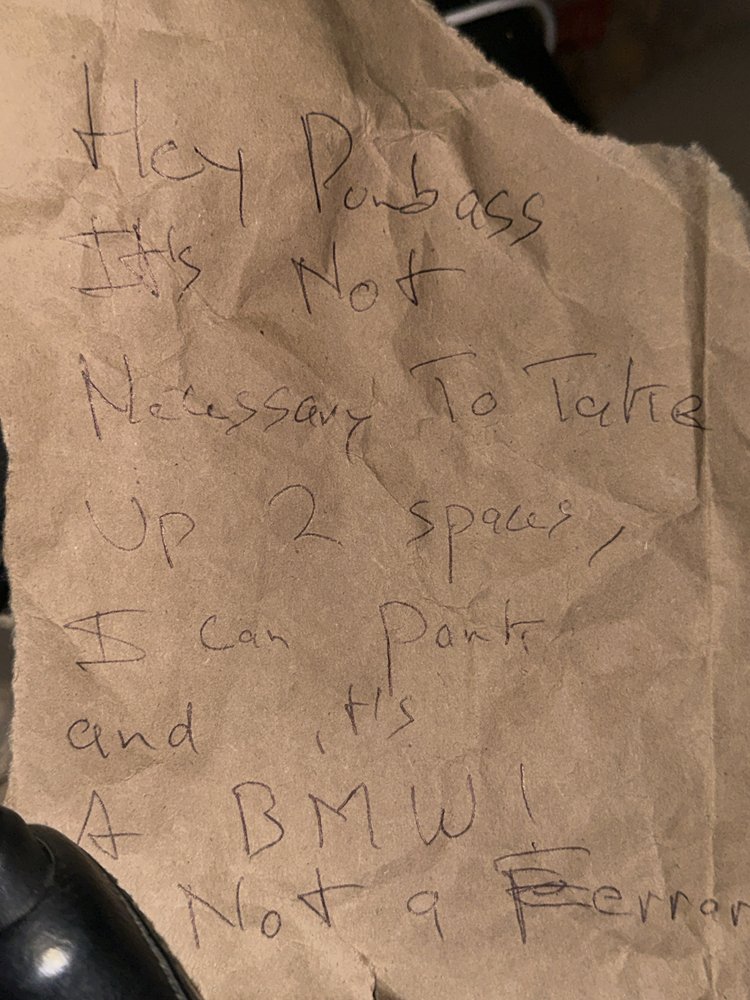 Hey Dumbass
It's Not
Necessary To Take
Up 2 spaces,
I can Park
and it's
A BMW!
Not a Ferrar